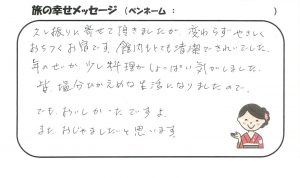 旅の幸せメッセージ（ペンネーム：　　　　）
久し振りに寄せて頂きましたが、変わらずやさしく
おちつくお宿です。館内もとても清潔できれいでした。
年のせいか、少し料理がしょっぱい気がしました。
皆、塩分ひかえめな生活になりましたので。
でも、おいしかったですよ。
また、おじゃましたいと思います。